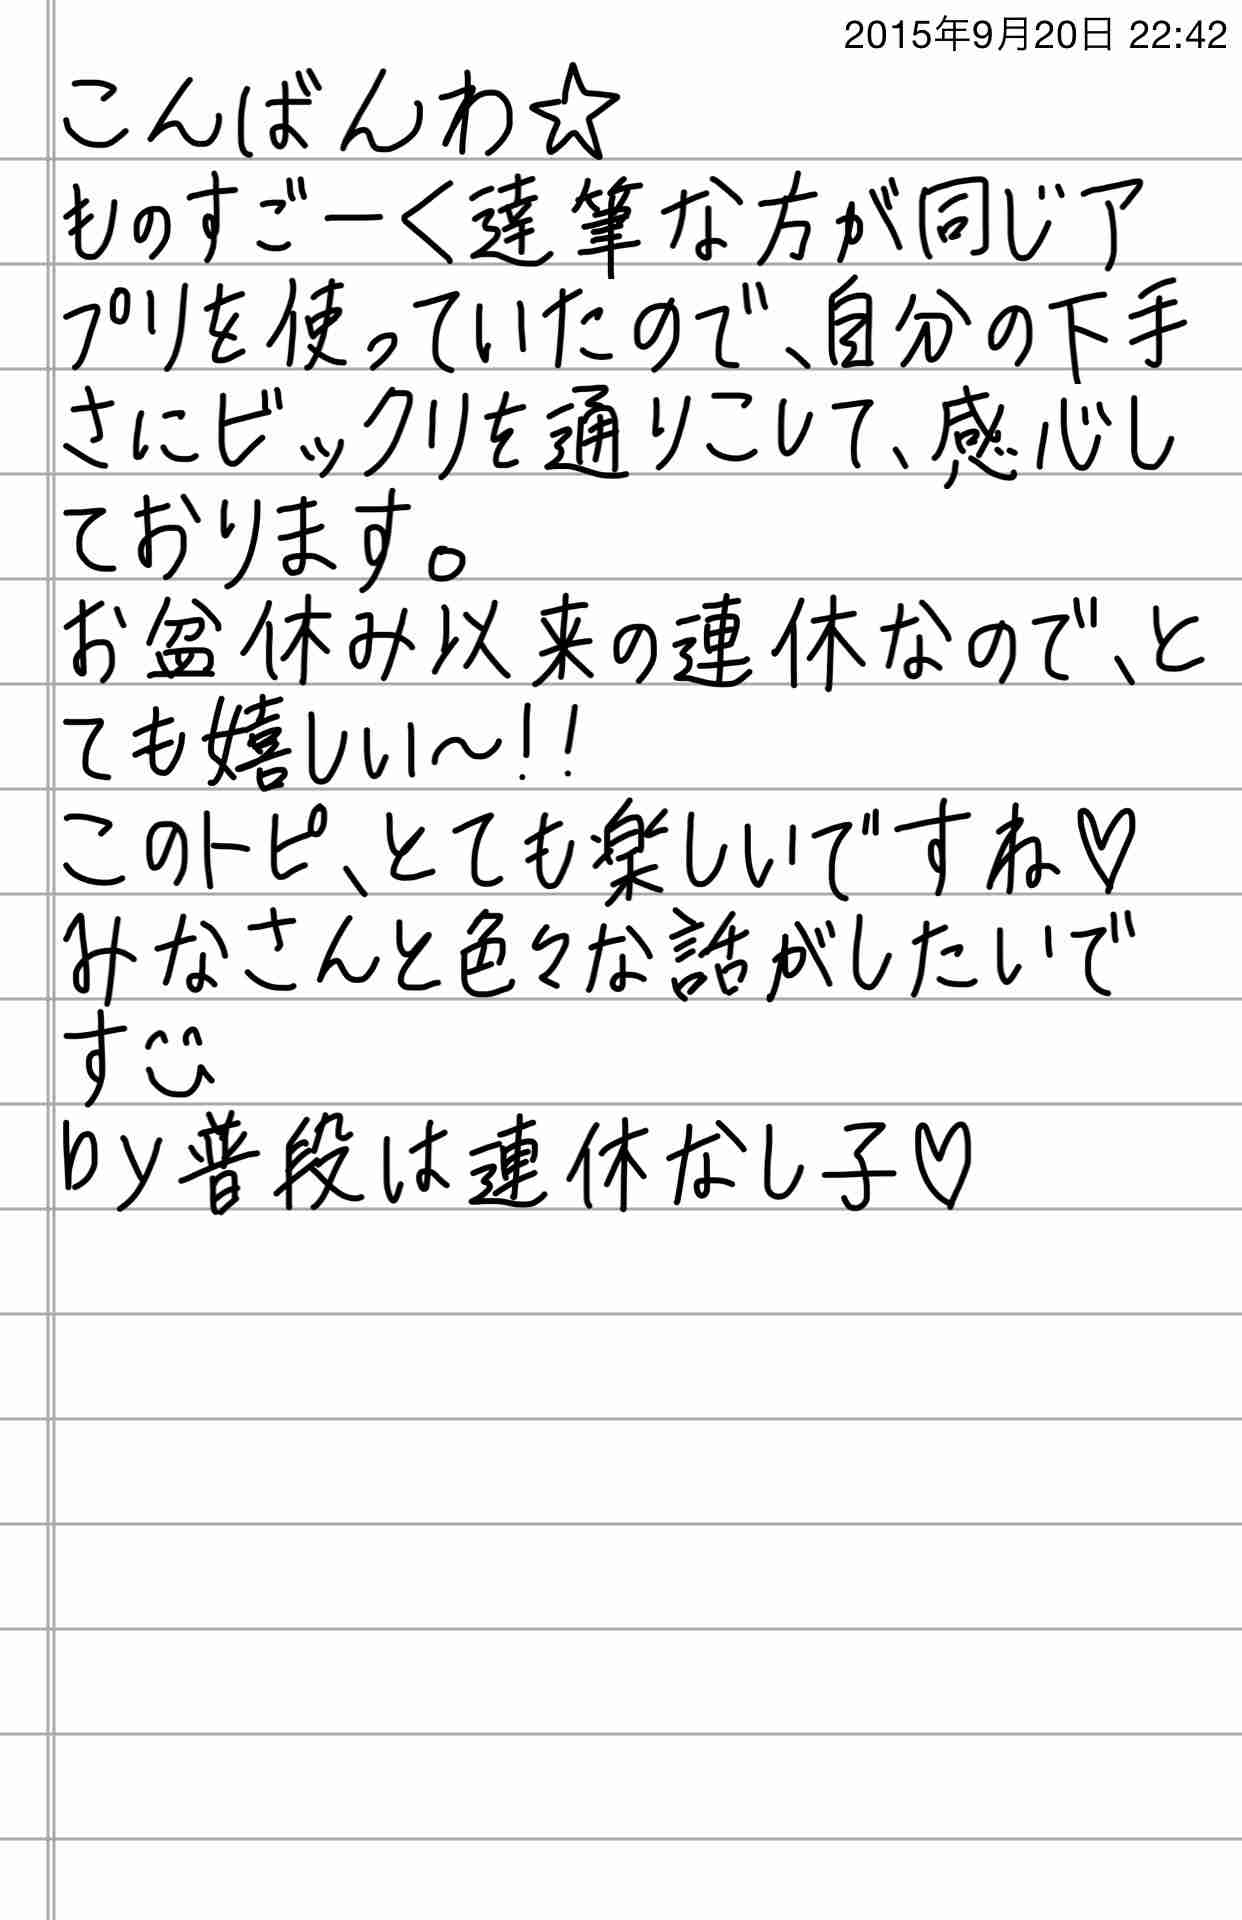 2015年9月20日 22:42
こんばんわ☆
ものすごーく達筆な方が同じア
プリを使っていたので、自分の下手
さにビックリを通りこして、感心し
ております。
お盆休み以来の連休なので、と
ても嬉しい〜!!
このトピ、とても楽しいですね♡
みなさんと色々な話がしたいで
す
by普段は連休なし子♡